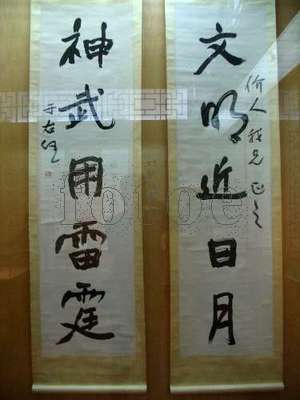 文明近日月
价人我兄 正之
神武用雷霆
于右任
fotoe